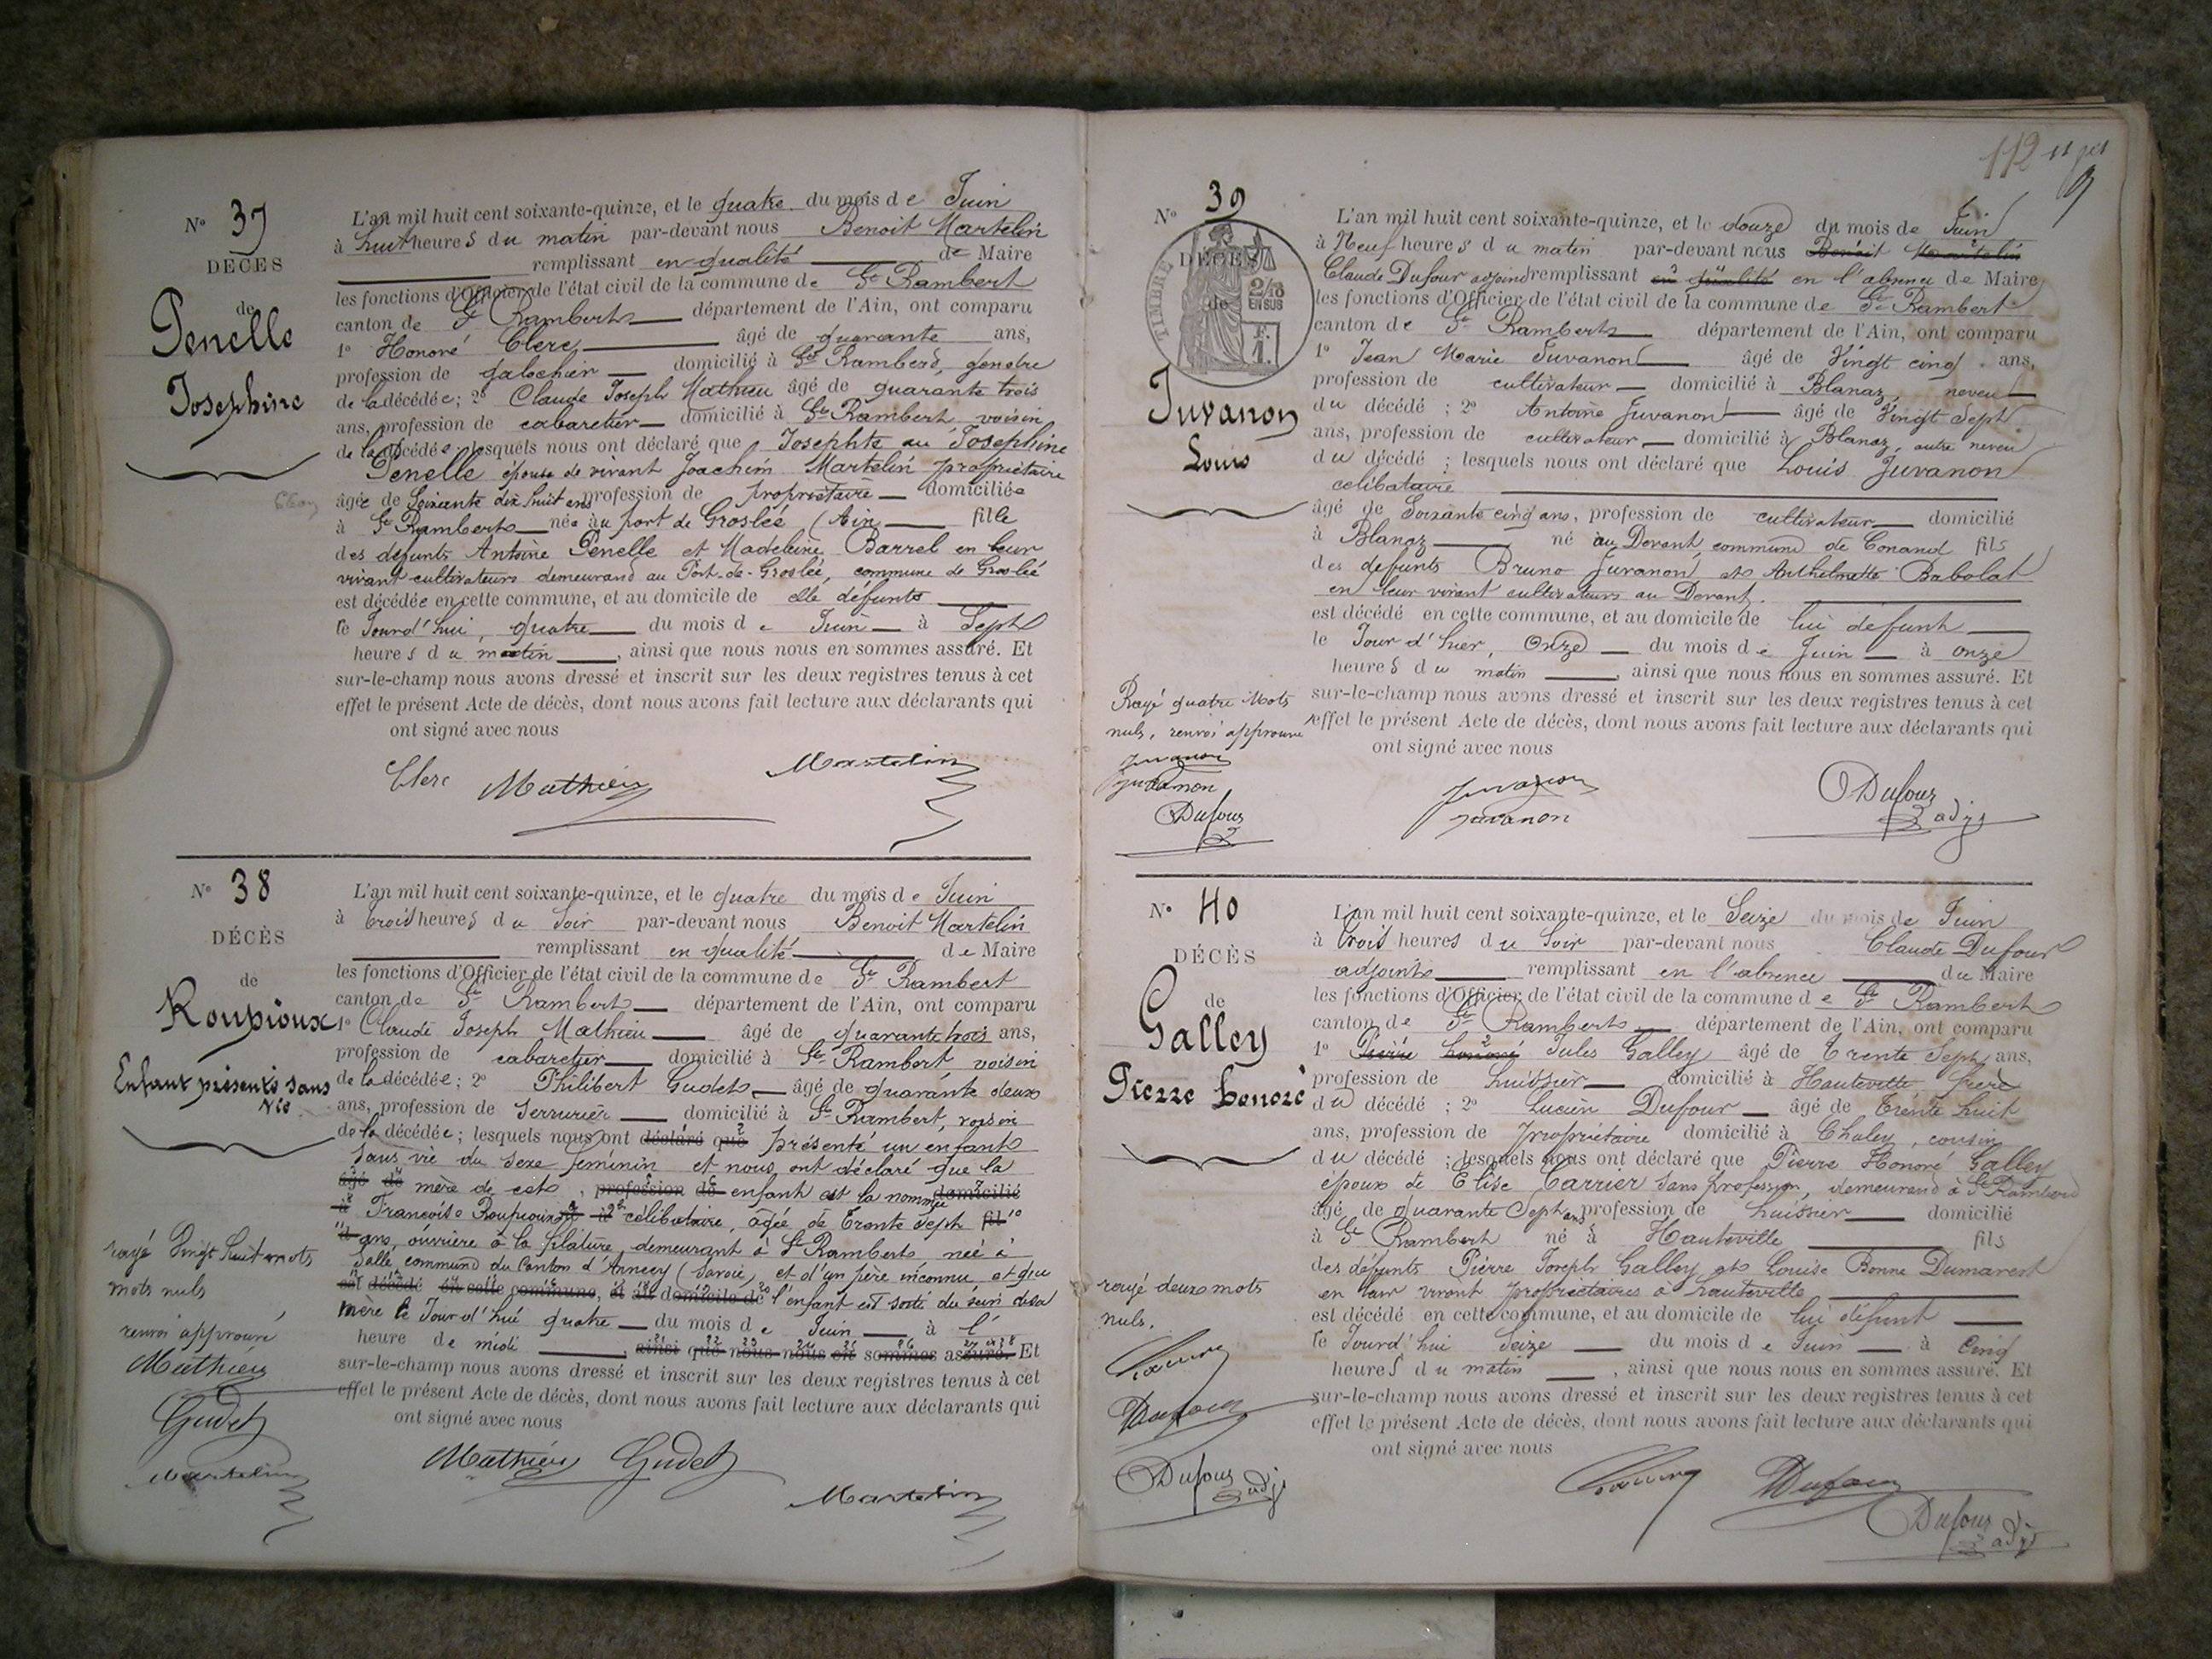 N° 37
DÉCÈS
de
Penelle
Josephine
L'an mil huit cent soixante-quinze, et le quatre du mois de Juin
à huit heures du matin par-devant nous Benoit Martelin
remplissant en qualité de Maire
les fonctions d'Officier de l'état civil de la commune de St Rambert
canton de St Rambert département de l'Ain, ont comparu
1° Honoré Clerc âgé de quarante ans,
profession de galochier domicilié à St Rambert, gendre
de la décédée; 2° Claude Joseph Mathieu âgé de quarante trois
ans, profession de cabaretier domicilié à St Rambert voisin
de la décédée; lesquels nous ont déclaré que Josephte au Josephine
Penelle épouse de vivant Joachim Martelin propriétaire
âgée de Soixante dix huit ans profession de propriétaire domiciliée
à St Rambert née au port de Groslée (Ain fille
des defunts Antoine Penelle et Madeleine Barrel en leur
vivant cultivateurs demeurand au Port-de-Groslée, commune de Groslée
est décédée en cette commune, et au domicile de elle défunte
le Jourd'hui, quatre du mois de Juin à Sept
heures du matin, ainsi que nous nous en sommes assuré. Et
sur-le-champ nous avons dressé et inscrit sur les deux registres tenus à cet
effet le présent Acte de décès, dont nous avons fait lecture aux déclarants qui
ont signé avec nous
Clerc Mathieu Martelin
N° 38
DÉCÈS
de
Roupioux
Enfant présenté sans
Vie
L'an mil huit cent soixante-quinze, et le quatre du mois de Juin
à trois heures du Soir par-devant nous Benoit Martelin
remplissant en qualité de Maire
les fonctions d'Officier de l'état civil de la commune de St Rambert
canton de St Rambert département de l'Ain, ont comparu
1° Claude Joseph Mathieu âgé de quarante trois ans,
profession de cabaretier domicilié à St Rambert, voisin
de la décédée; 2° Philibert Gudet âgé de quarante deux
ans, profession de Serrurier domicilié à St Rambert, voisin
de la décédée; lesquels nous ont déclaré que présenté un enfant
Sans vie du Sexe féminin et nous ont déclaré que la
âgé de mère de cet, profession de enfant est la nommée domicilié
à Françoise Roupioux né à célibataire, âgée de Trente Sept fil
d ans, ouvrière à la filature, demeurant à St Rambert née à
Salle commune du Canton d'Annecy (Savoie) et d'un père inconnu et que
est décédé en cette commune, et au domicile de l'enfant est sorti du sein de sa
mère le Jourd'hui quatre du mois de Juin à l'
heure de midi, ainsi que nous nous en sommes assuré. Et
sur-le-champ nous avons dressé et inscrit sur les deux registres tenus à cet
effet le présent Acte de décès, dont nous avons fait lecture aux déclarants qui
ont signé avec nous
rayé Vingt huit mots
mots nuls
renvoi approuvé
Mathieu
Gudet
Martelin
Mathieu Gudet
Martelin
112
N° 39
DÉCÈS
de
TIMBRE
2/10
EN SUS
Juvanon
Louis
L'an mil huit cent soixante-quinze, et le douze du mois de Juin
à Neuf heures du matin par-devant nous Benoit Martelin
Claude Dufour adjoind remplissant en qualité en l'absence de Maire
les fonctions d'Officier de l'état civil de la commune de St Rambert
canton de St Rambert département de l'Ain, ont comparu
1° Jean Marie Juvanon âgé de Vingt cinq ans,
profession de cultivateur domicilié à Blanaz, neveu
du décédé; 2° Antoine Juvanon âgé de Vingt Sept
ans, profession de cultivateur domicilié à Blanaz, autre neveu
du décédé; lesquels nous ont déclaré que Louis Juvanon
celibataire
âgé de Soixante cinq ans, profession de cultivateur domicilié
à Blanaz né au Devant commune de Conand fils
des defunts Bruno Juvanon et Anthelmette Babolat
en leur vivant cultivateurs au Devant.
est décédé en cette commune, et au domicile de lui defunt
le Jour d'hier, Onze du mois de Juin à onze
heures du matin, ainsi que nous nous en sommes assuré. Et
sur-le-champ nous avons dressé et inscrit sur les deux registres tenus à cet
effet le présent Acte de décès, dont nous avons fait lecture aux déclarants qui
ont signé avec nous
Rayé quatre Mots
nuls, renvoi approuvé
Juvanon
Juvanon
Dufour
Juvanon
Juvanon
Dufour
adjt
N° 40
DÉCÈS
de
Galley
Pierre Honoré
L'an mil huit cent soixante-quinze, et le Seize du mois de Juin
à trois heures du Soir par-devant nous Claude Dufour
adjoint remplissant en l'absence du Maire
les fonctions d'Officier de l'état civil de la commune de St Rambert
canton de St Rambert département de l'Ain, ont comparu
1° Pierre honoré Jules Galley âgé de Trente Sept ans,
profession de huissier domicilié à Hauteville frère
du décédé; 2° Lucien Dufour âgé de Trente huit
ans, profession de propriétaire domicilié à Chaley, cousin
du décédé; lesquels nous ont déclaré que Pierre Honoré Galley
époux de Elise Carrier Sans profession, demeurand à St Rambert
âgé de quarante Sept ans profession de huissier domicilié
à St Rambert né à Hauteville fils
des défunts Pierre Joseph Galley et Louise Bonne Dumarest
en leur vivant propriétaires à hauteville
est décédé en cette commune, et au domicile de lui défunt
le Jourd'hui Seize du mois de Juin à Cinq
heures du matin, ainsi que nous nous en sommes assuré. Et
sur-le-champ nous avons dressé et inscrit sur les deux registres tenus à cet
effet le présent Acte de décès, dont nous avons fait lecture aux déclarants qui
ont signé avec nous
rayé deux mots
nuls.
Dufour
Dufour adjt
Dufour
Dufour
adjt